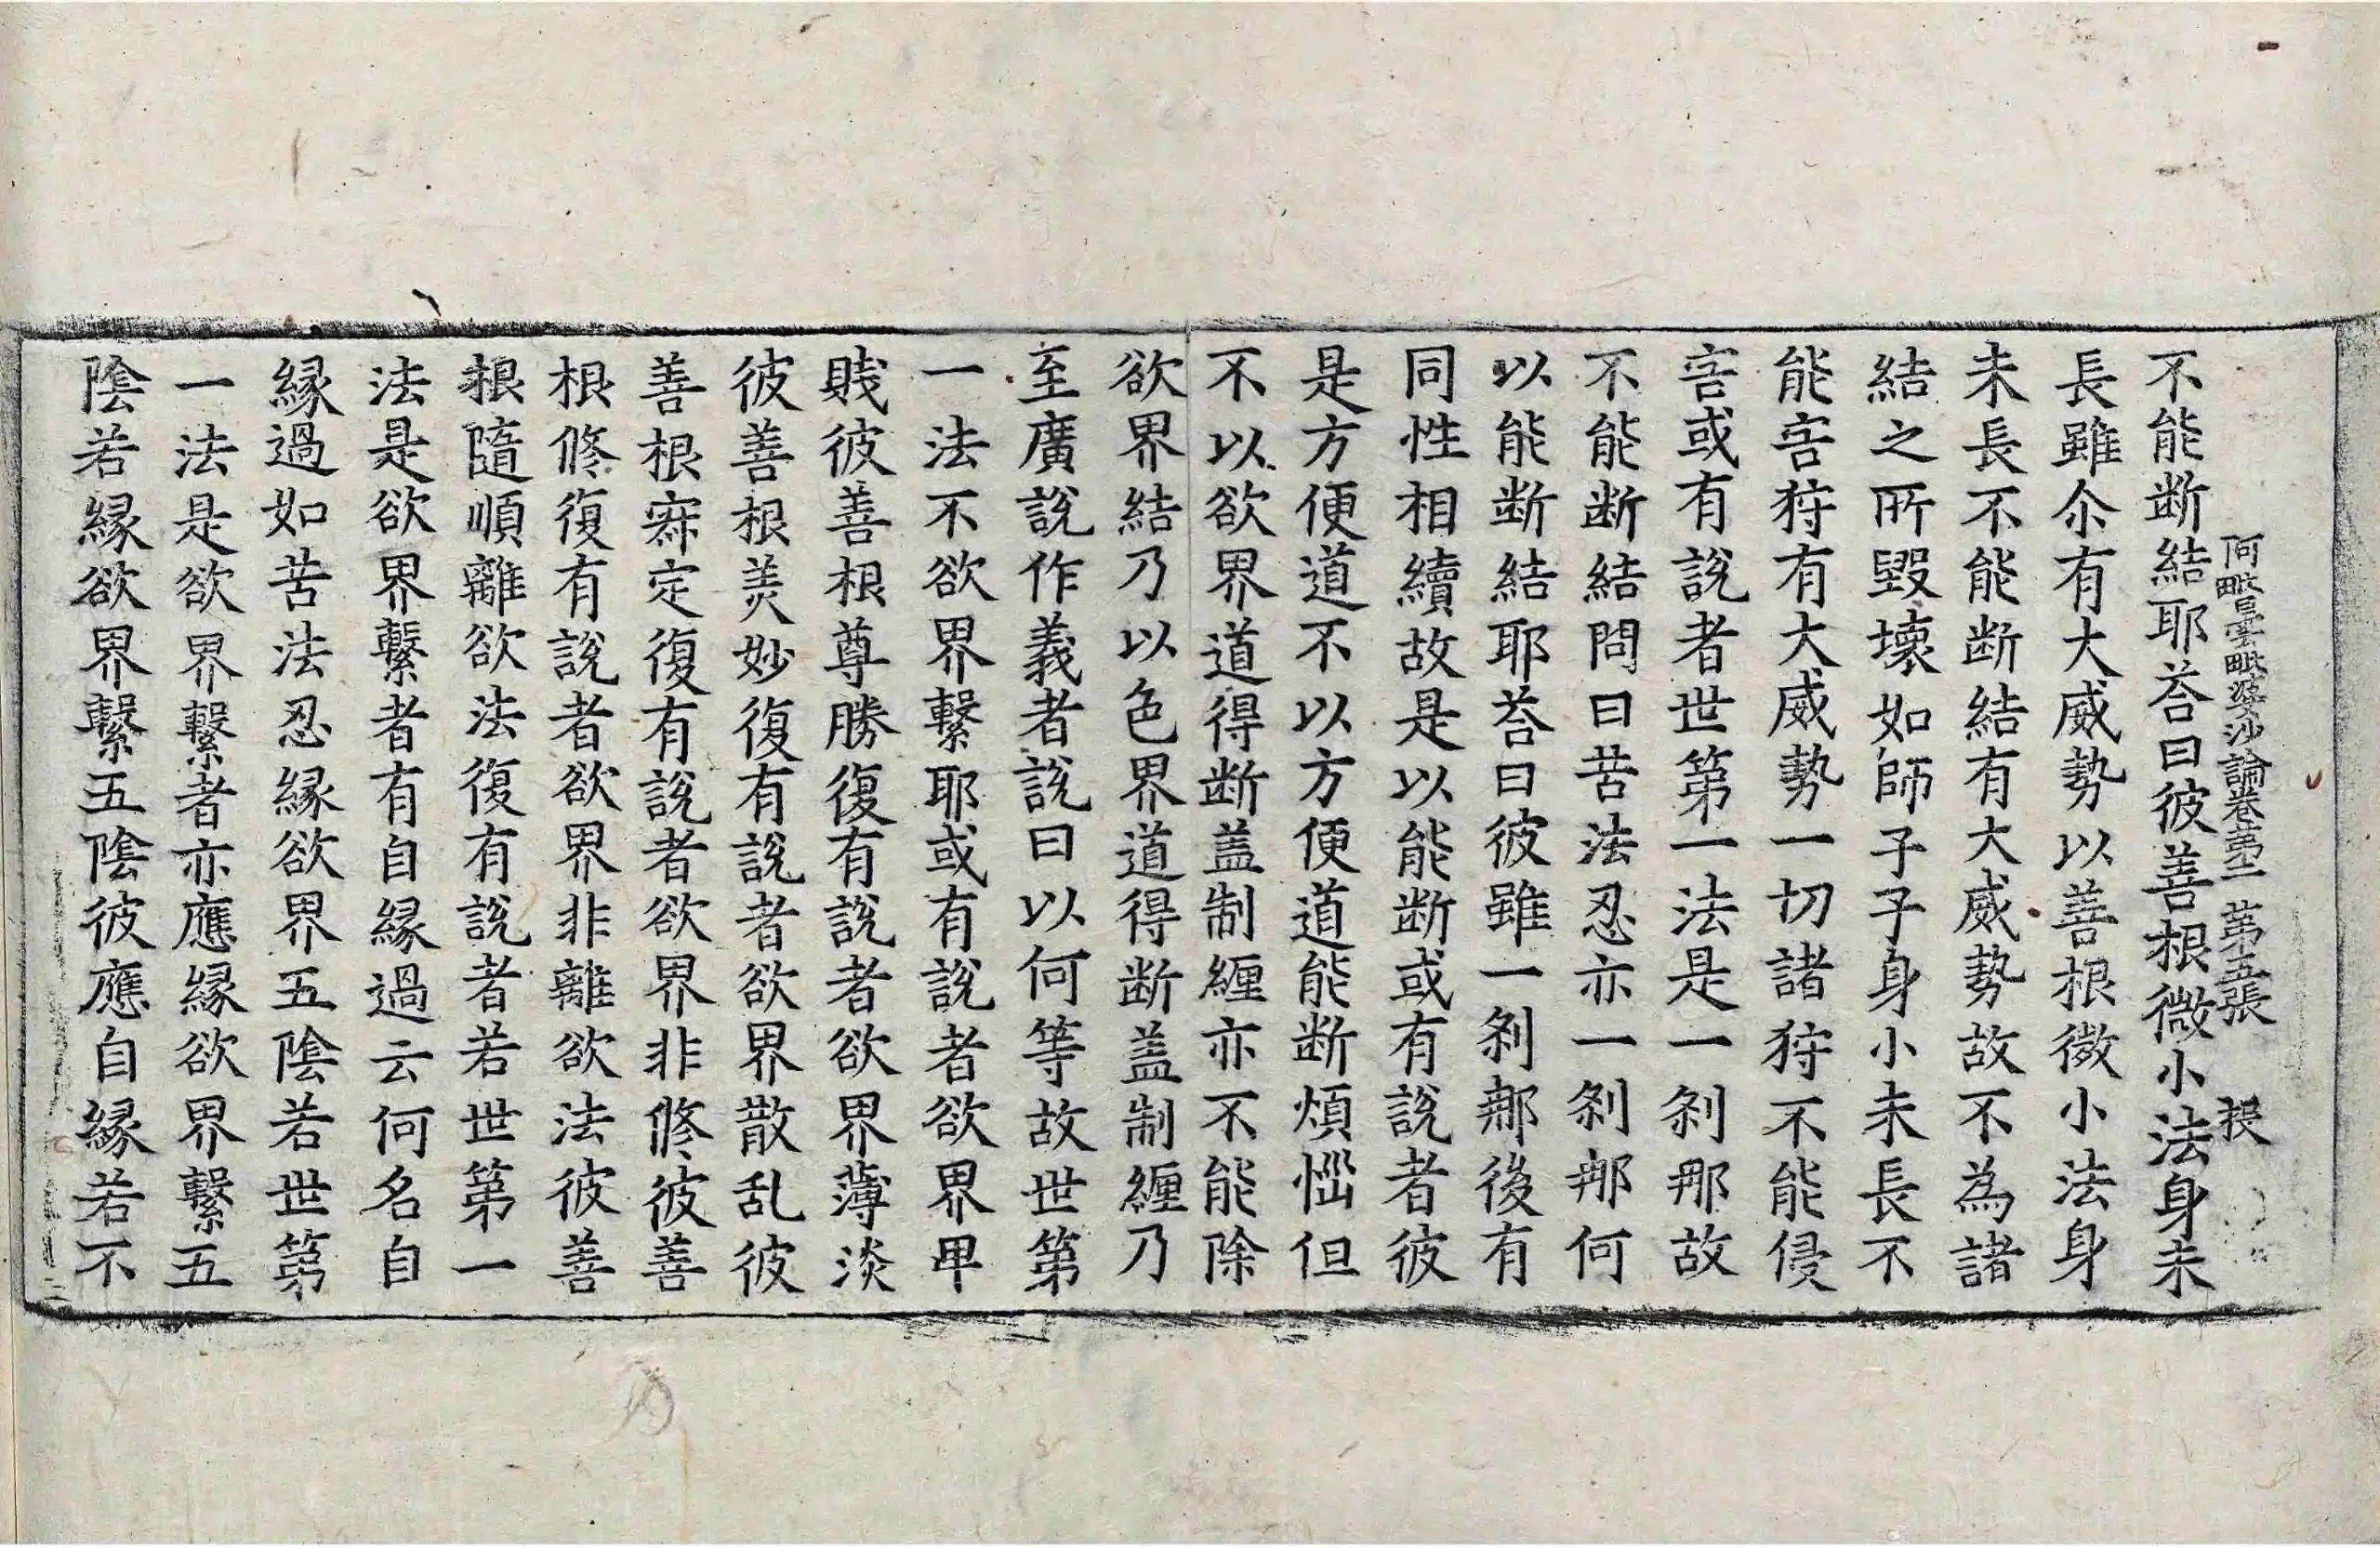 阿毗曇毗婆沙論卷第二 第五張
不能断結耶荅曰彼善根微小法身未
長雖尒有大威勢以善根微小法身
未長不能断結有大威勢故不為諸
結之所毀壞如師子子身小未長不
能害狩有大威勢一切諸狩不能侵
害或有說者世第一法是一剎那故
不能断結問曰苦法忍亦一剎那何
以能断結耶荅曰彼雖一剎那後有
同性相續故是以能断或有說者彼
是方便道不以方便道能断煩惱但
不以欲界道得断盖制纏亦不能除
欲界結乃以色界道得断盖制纏乃
至廣說作義者說曰以何等故世第
一法不欲界繫耶或有說者欲界卑
賤彼善根尊勝復有說者欲界薄淡
彼善根美妙復有說者欲界散乱彼
善根寂定復有說者欲界非修彼善
根修復有說者欲界非離欲法彼善
根隨順離欲法復有說者若世第一
法是欲界繫者有自緣過云何名自
緣過如苦法忍緣欲界五陰若世第
一法是欲界繫者亦應緣欲界繫五
陰若緣欲界繫五陰彼應自緣若不